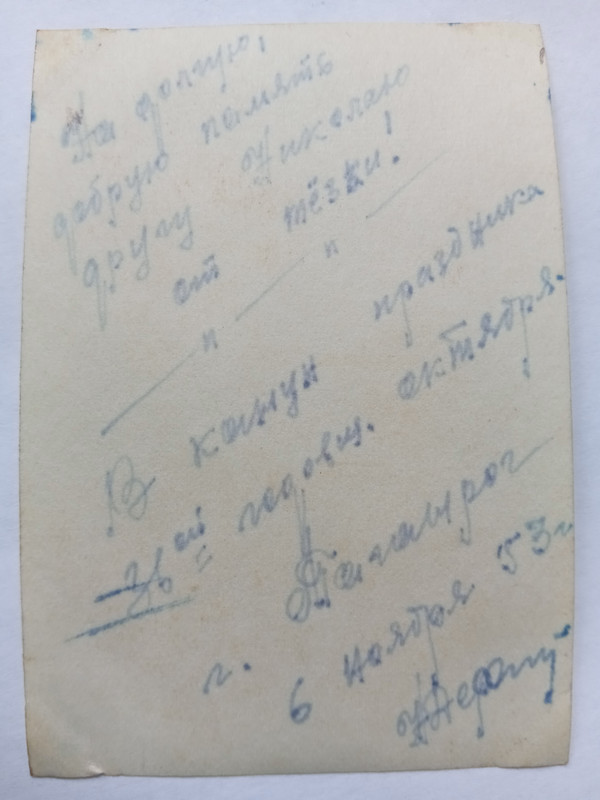 На долгую,
добрую память
другу Николаю
от тёзки!
— " — " —
В канун праздника
36ой годовщ. октября.
г. Таганрог
6 ноября 53 г